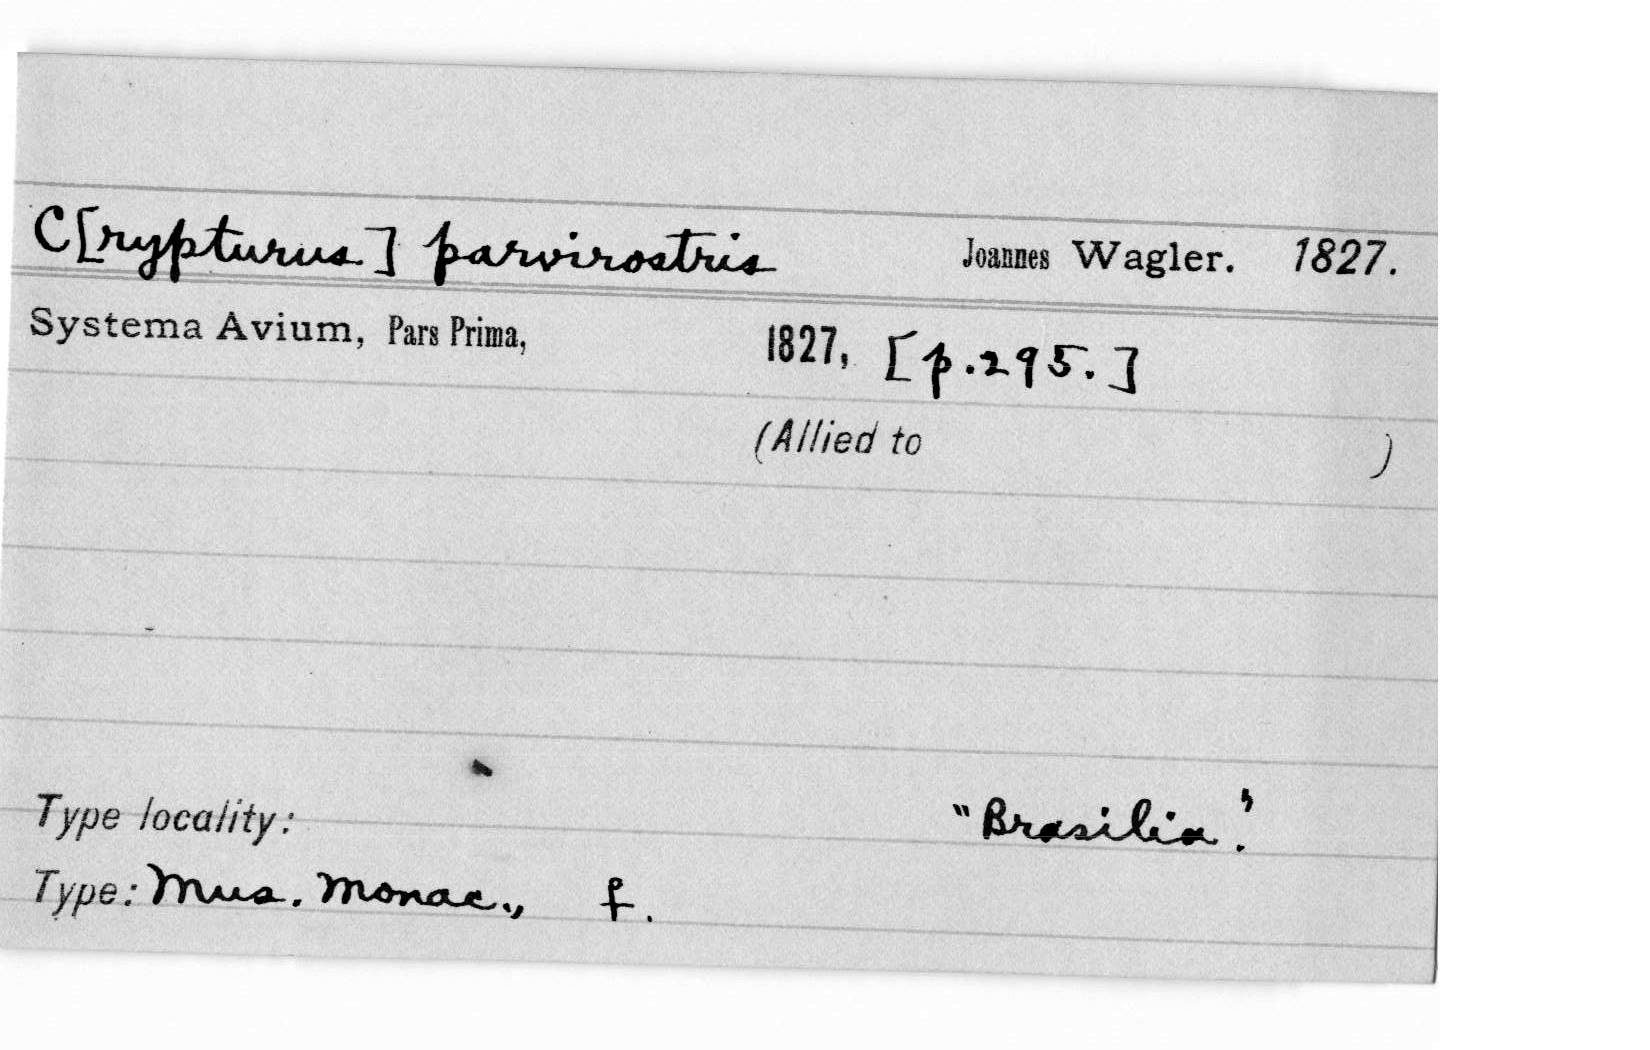 C[rypturus] parvirostris Joannes Wagler. 1827.
Systema Avium, Pars Prima, 1827, [p.295.]
(Allied to )
Type locality: "Brasilia."
Type: Mus. Monac., f.